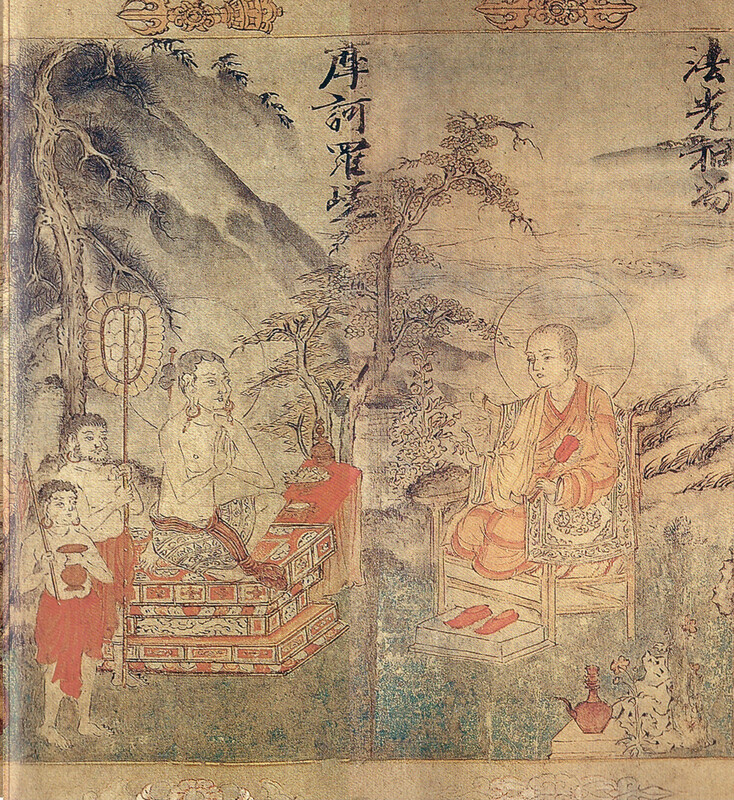 法光和尚
摩訶羅嵯